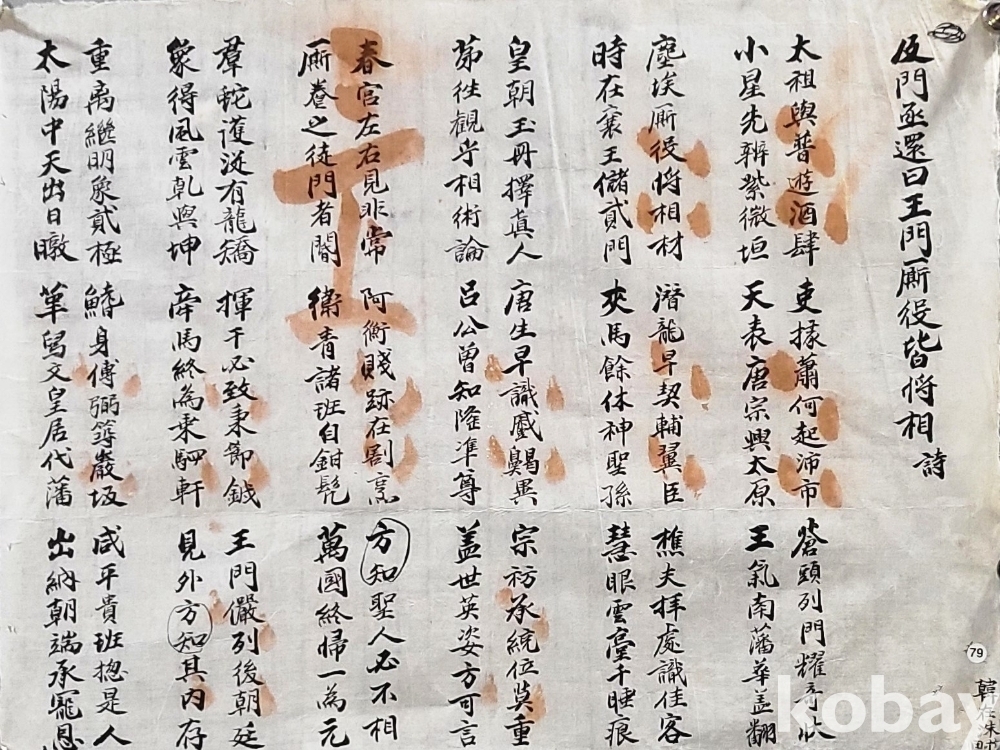 反門亟還曰王門厮役皆將相 詩
太祖與普遊酒肆 吏掾蕭何起沛市 蒼頭列門耀奇狀
小星先辨紫微垣 天表唐宗興太原 王氣南藩華盖翻
塵埃厮役將相材 潛龍早契輔翼臣 樵夫拜處識佳客
時在襄王儲貳門 夾馬餘休神聖孫 慧眼雲臺千睡痕
皇朝玉冊擇眞人 唐生早識戚異 宗祊承統位莫重
茀徃觀乎相術論 呂公曾知隆準尊 盖世英姿方可言
春宮左右見非常 阿衡賤跡在割烹 方知聖人必不相
厮養之徒門者閽 衛青諸班自鉗髡 萬國終歸一為元
羣蛇護涎有龍矯 揮干必致秉節鉞 王門儼列後朝廷
象得風雲乾與坤 牽馬終為乘駟軒 見外方知其內存
重离繼明象貳極 鰭身傅弼巖坂 咸平貴班摠是人
太陽中天出日暾 寫文皇居代藩 出納朝端承寵恩
79
韓
kobay